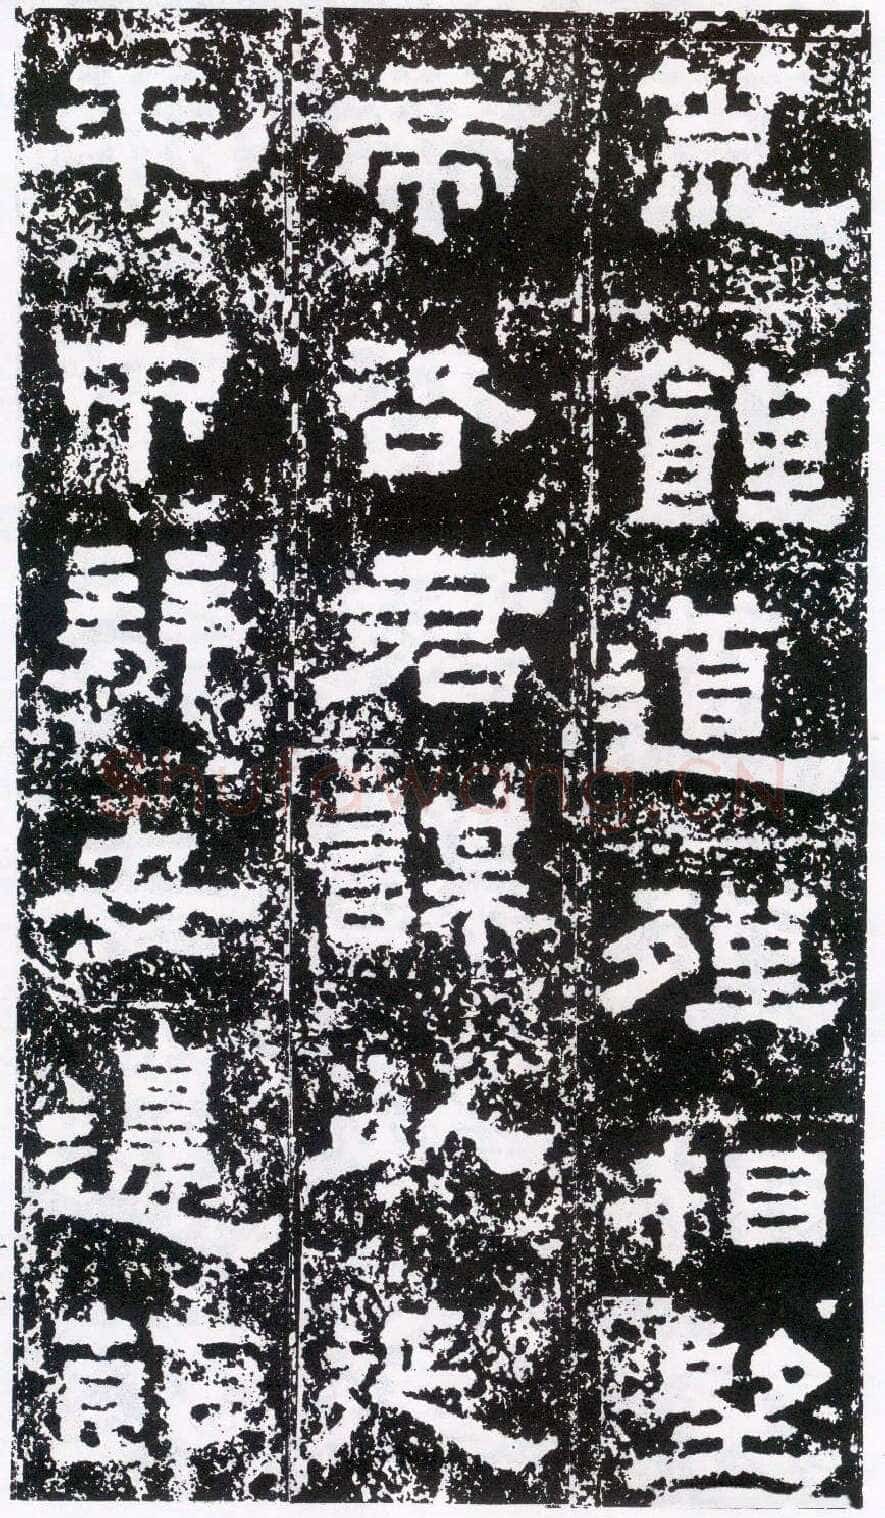 荒饉道殣相望
帝咨君謀以延
平中拜安邊節
Shufawang.CN